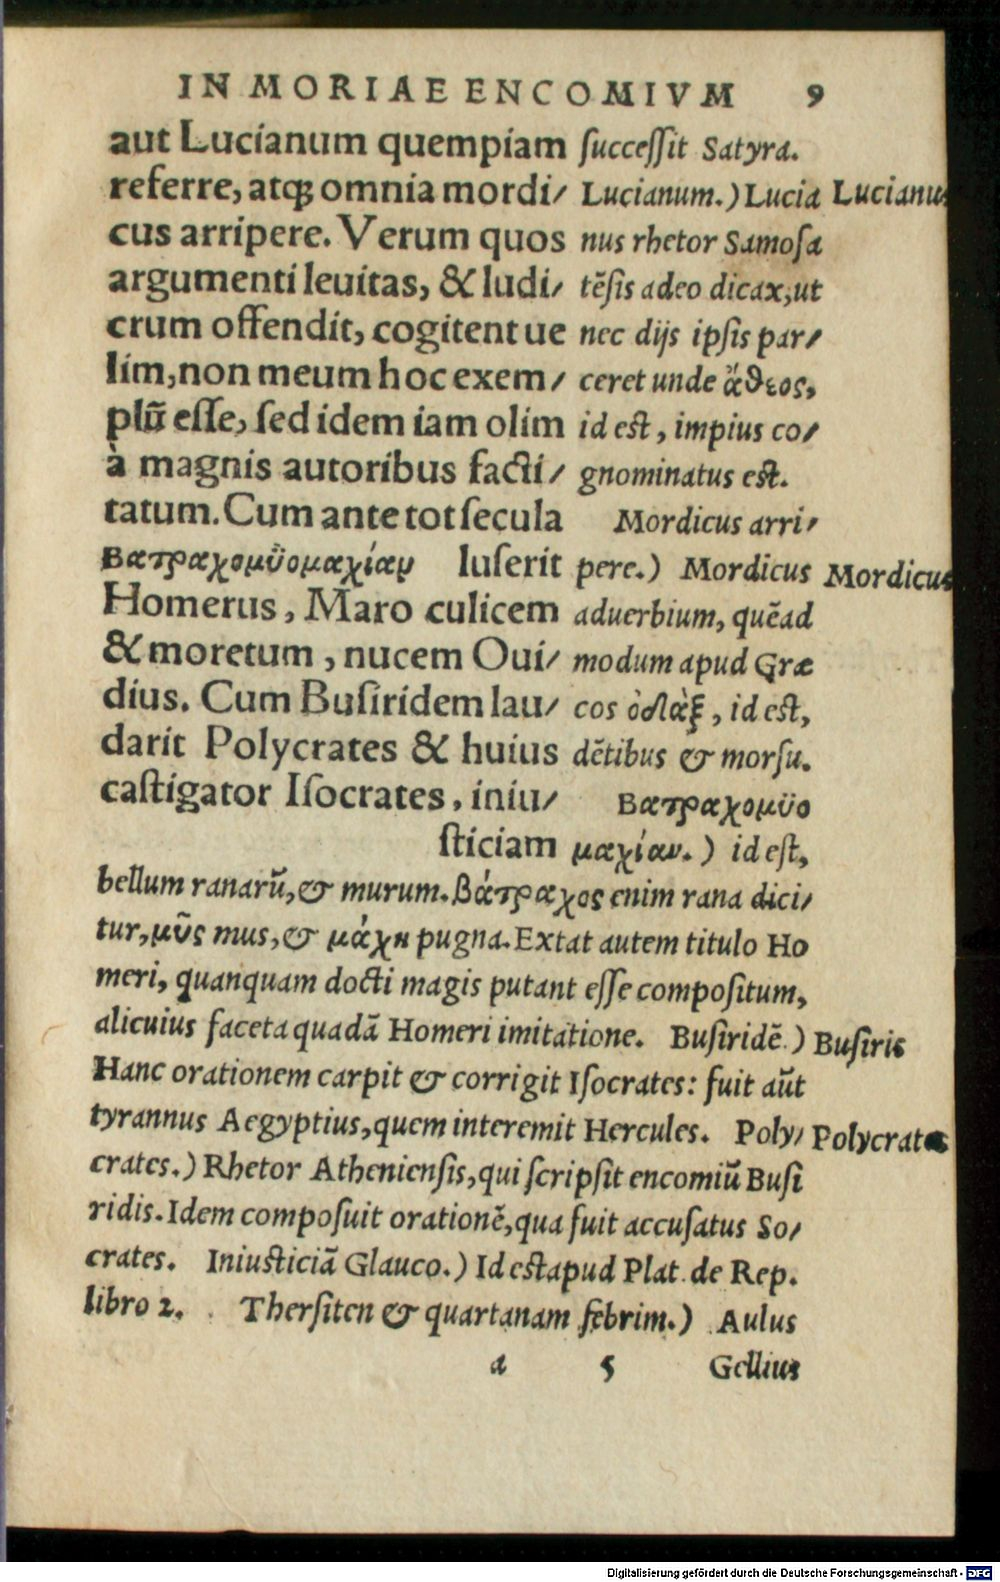 IN MORIAE ENCOMIVM 9
aut Lucianum quempiam
referre, atq; omnia mordi/
cus arripere. Verum quos
argumenti leuitas, & ludi/
crum offendit, cogitent ue
lim, non meum hoc exem/
plũ esse, sed idem iam olim
à magnis autoribus facti/
tatum. Cum ante tot secula
Βατραχομϋομαχίαν luserit
Homerus, Maro culicem
& moretum, nucem Oui/
dius. Cum Busiridem lau/
darit Polycrates & huius
castigator Isocrates, iniu/
sticiam
successit Satyra.
Lucianum.) Lucia
nus rhetor Samosa
tẽsis adeo dicax, ut
nec dijs ipsis par/
ceret unde ἄθεος,
id est, impius co/
gnominatus est.
Mordicus arri/
pere.) Mordicus
aduerbium, quẽad
modum apud Græ
cos ὀδὰξ, id est,
dẽtibus & morsu.
Βατραχομϋο
μαχίαν.) id est,
bellum ranarũ, & murum. Βάτραχος enim rana dici/
tur, μῦς mus, & μάχη pugna. Extat autem titulo Ho
meri, quanquam docti magis putant esse compositum,
alicuius faceta quadã Homeri imitatione. Busiridẽ.)
Hanc orationem carpit & corrigit Isocrates: fuit aũt
tyrannus Aegyptius, quem interemit Hercules. Poly/
crates.) Rhetor Atheniensis, qui scripsit encomiũ Busi
ridis. Idem composuit orationẽ, qua fuit accusatus So/
crates. Iniusticiã Glauco.) Id est apud Plat. de Rep.
libro 2. Thersiten & quartanam febrim.) Aulus
a 5 Gellius
Lucianus
Mordicus
Busiris
Polycrates
Digitalisierung gefördert durch die Deutsche Forschungsgemeinschaft - DFG